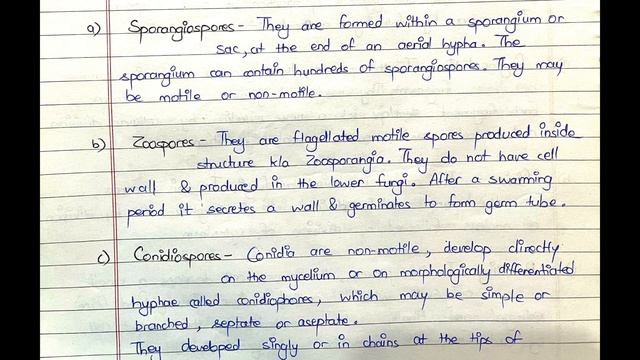 a) Sporangiospores - They are formed within a sporangium or
sac, at the end of an aerial hypha. The
sporangium can contain hundreds of sporangiospores. They may
be motile or non-motile.
b) Zoospores - They are flagellated motile spores produced inside
structure kla Zoosporangia. They do not have cell
wall & produced in the lower fungi. After a swarming
period it secretes a wall & germinates to form germ tube.
c) Conidiospores - Conidia are non-motile, develop directly
on the mycelium or on morphologically differentiated
hyphae called conidiophores, which may be simple or
branched, septate or aseptate.
They developed singly or in chains at the tips of